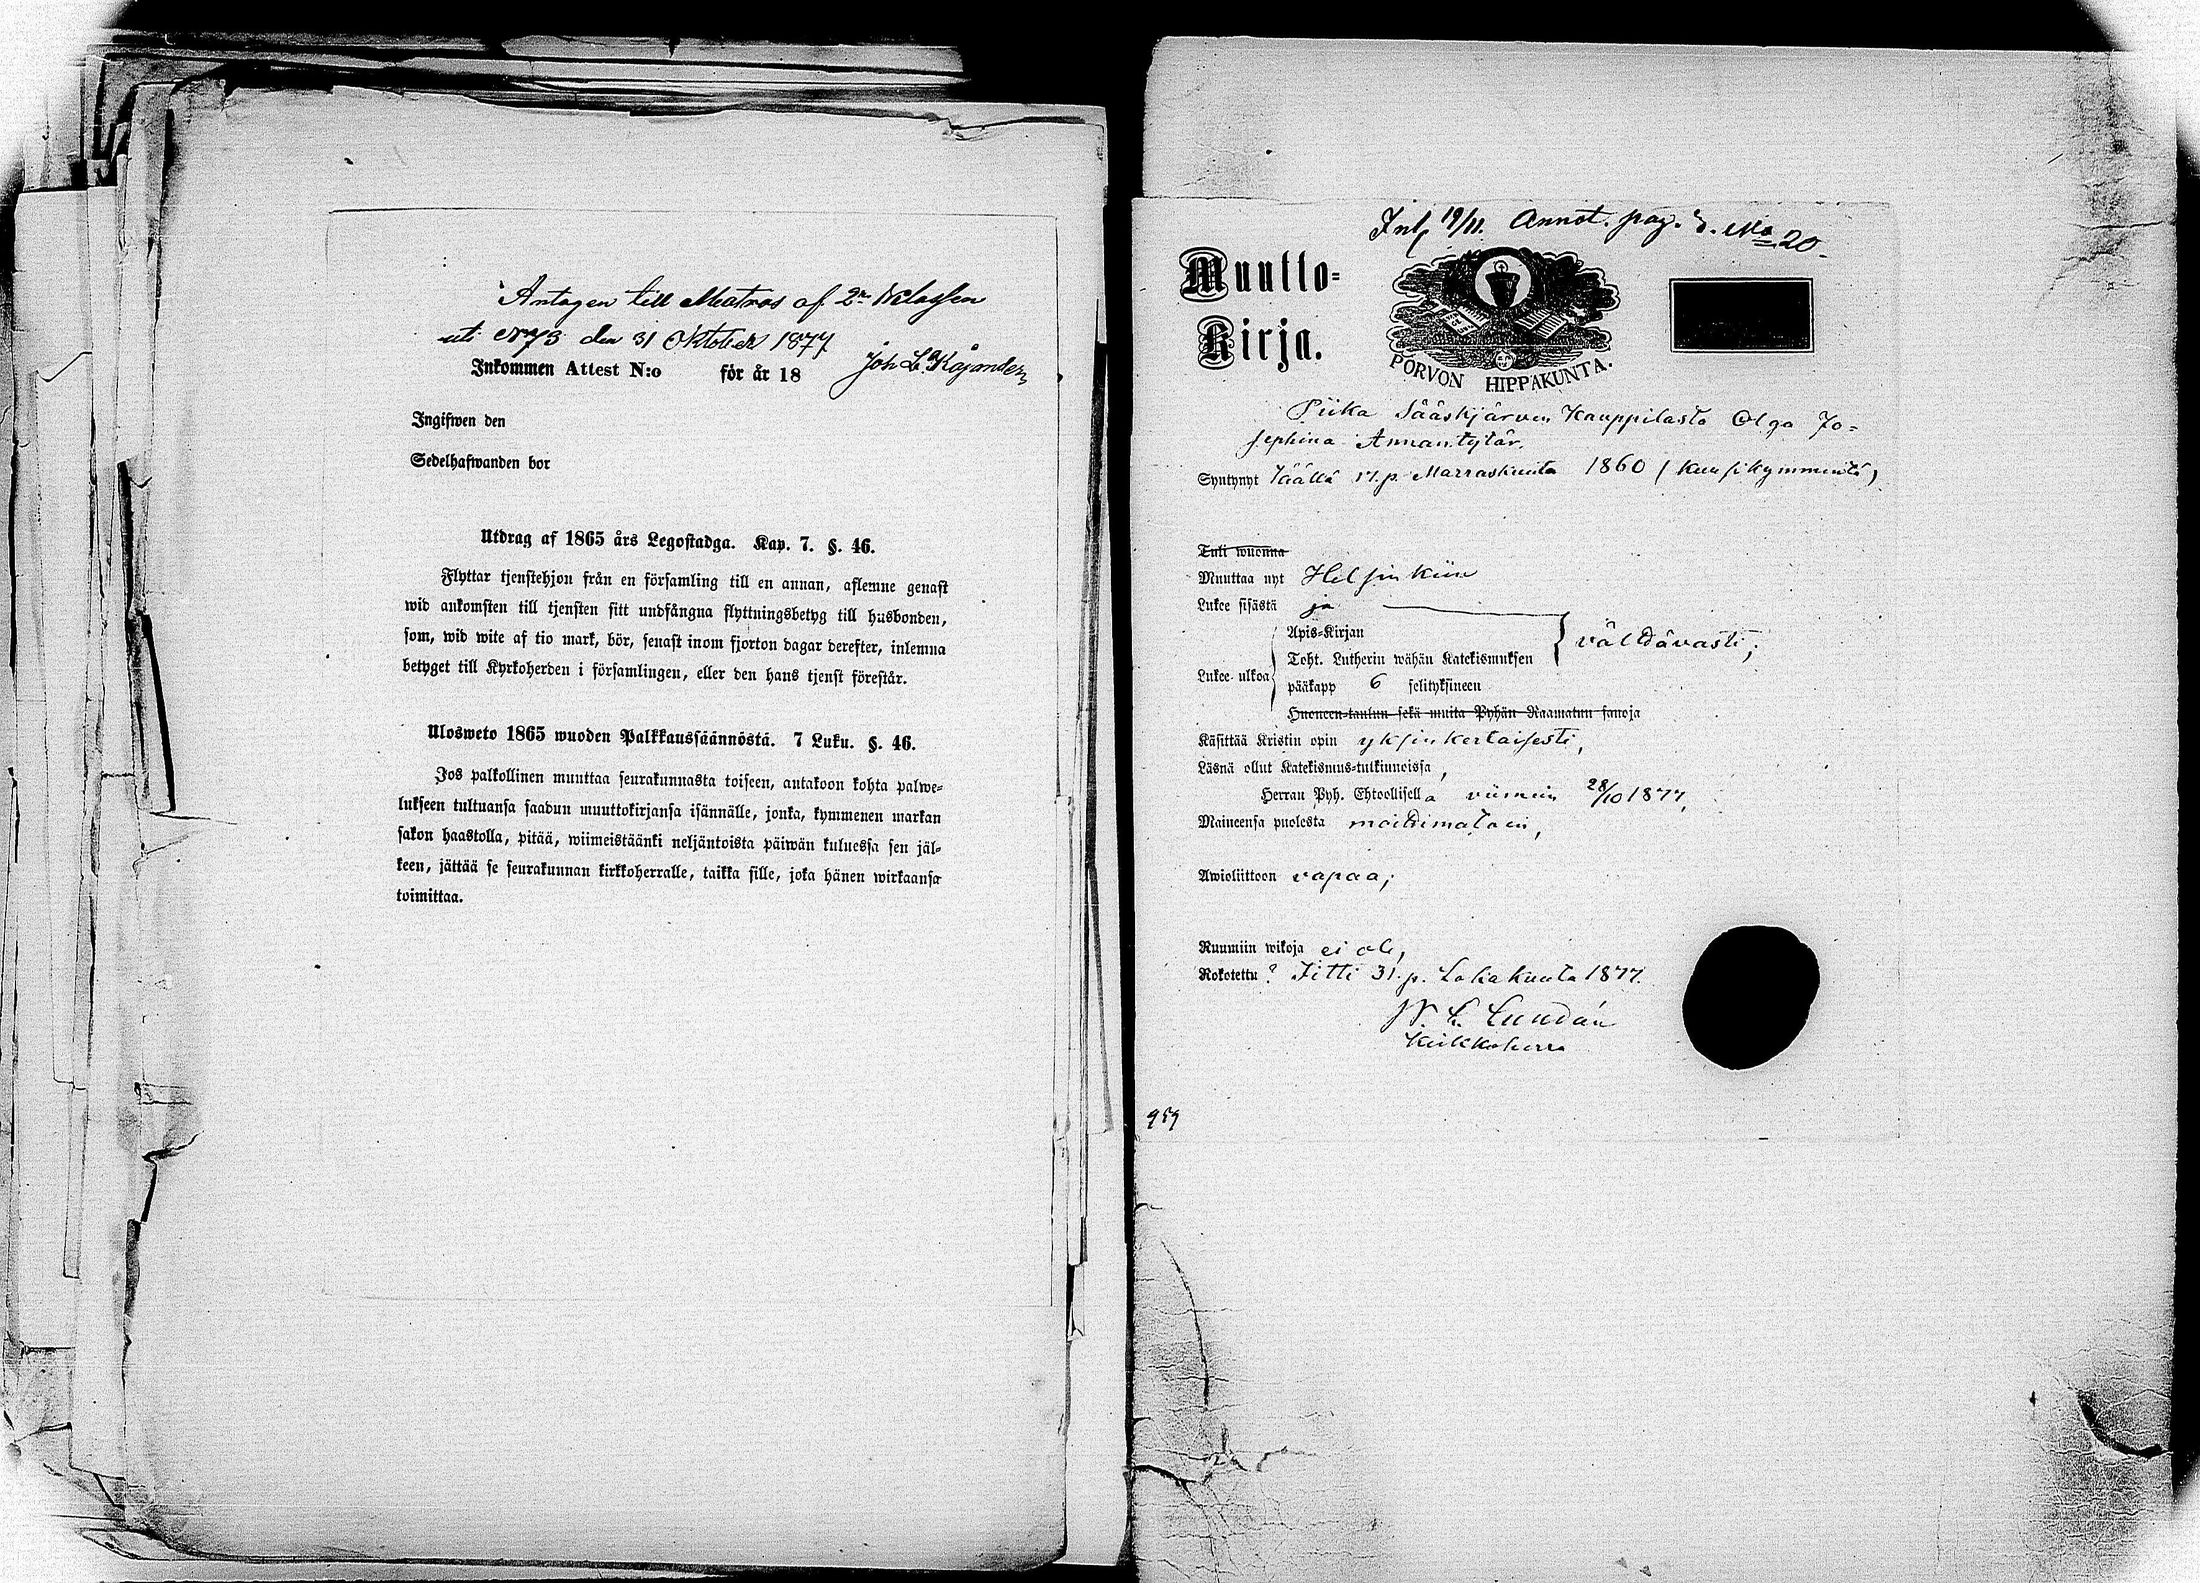 Antagen till Matros af 2n Klassen
uti No 73 den 31 Oktober 1877
Joh L. Kajander
Inkommen Attest N:o för år 18
Ingifwen den
Sedelhafwanden bor
Utdrag af 1865 års Legostadga. Kap. 7. §. 46.
Flyttar tjenstehjon från en församling till en annan, aflemne genast
wid ankomsten till tjensten sitt undfångna flyttningsbetyg till husbonden,
som, wid wite af tio mark, bör, senast inom fjorton dagar derefter, inlemna
betyget till Kyrkoherden i församlingen, eller den hans tjenst förestår.
Ulosweto 1865 wuoden Palkkaussäännöstä. 7 Luku. §. 46.
Jos palkollinen muuttaa seurakunnasta toiseen, antakoon kohta palwe=
lukseen tultuansa saadun muuttokirjansa isännälle, jonka, kymmenen markan
sakon haastolla, pitää, wiimeistäänki neljäntoista päiwän kuluessa sen jäl=
keen, jättää se seurakunnan kirkkoherralle, taikka sille, joka hänen wirkaansa
toimittaa.
Inl. 19/11. Annot. pag. 3. No 20.
Muutto=
Kirja.
PORVON HIPPAKUNTA.
Piika Sääskjärven Kauppilasta Olga Jo=
sephina Annantytär.
Syntynyt Täällä 17.p. Marraskuuta 1860 (kuusikymmentä)
Tuli wuonna
Muuttaa nyt Helsinkiin
Lukee sisästä ja
Apis=Kirjan
Toht. Lutherin wähän Katekismuksen välttävästi;
Lukee ulkoa
pääkapp 6 selityksineen
Huoneen=taulun sekä muita Pyhän Raamatun sanoja
Käsittää Kristin opin yksinkertaisesti,
Läsnä ollut Katekismus=tutkinnoissa,
Herran Pyh. Ehtoollisella viimein 28/10 1877,
Maineensa puolesta moittimatoin,
Awioliittoon vapaa;
Ruumiin wikoja ei ole,
Rokotettu? Iitti 31.p. Lokakuuta 1877.
W. L. Lundán
Kirkkoherra
959